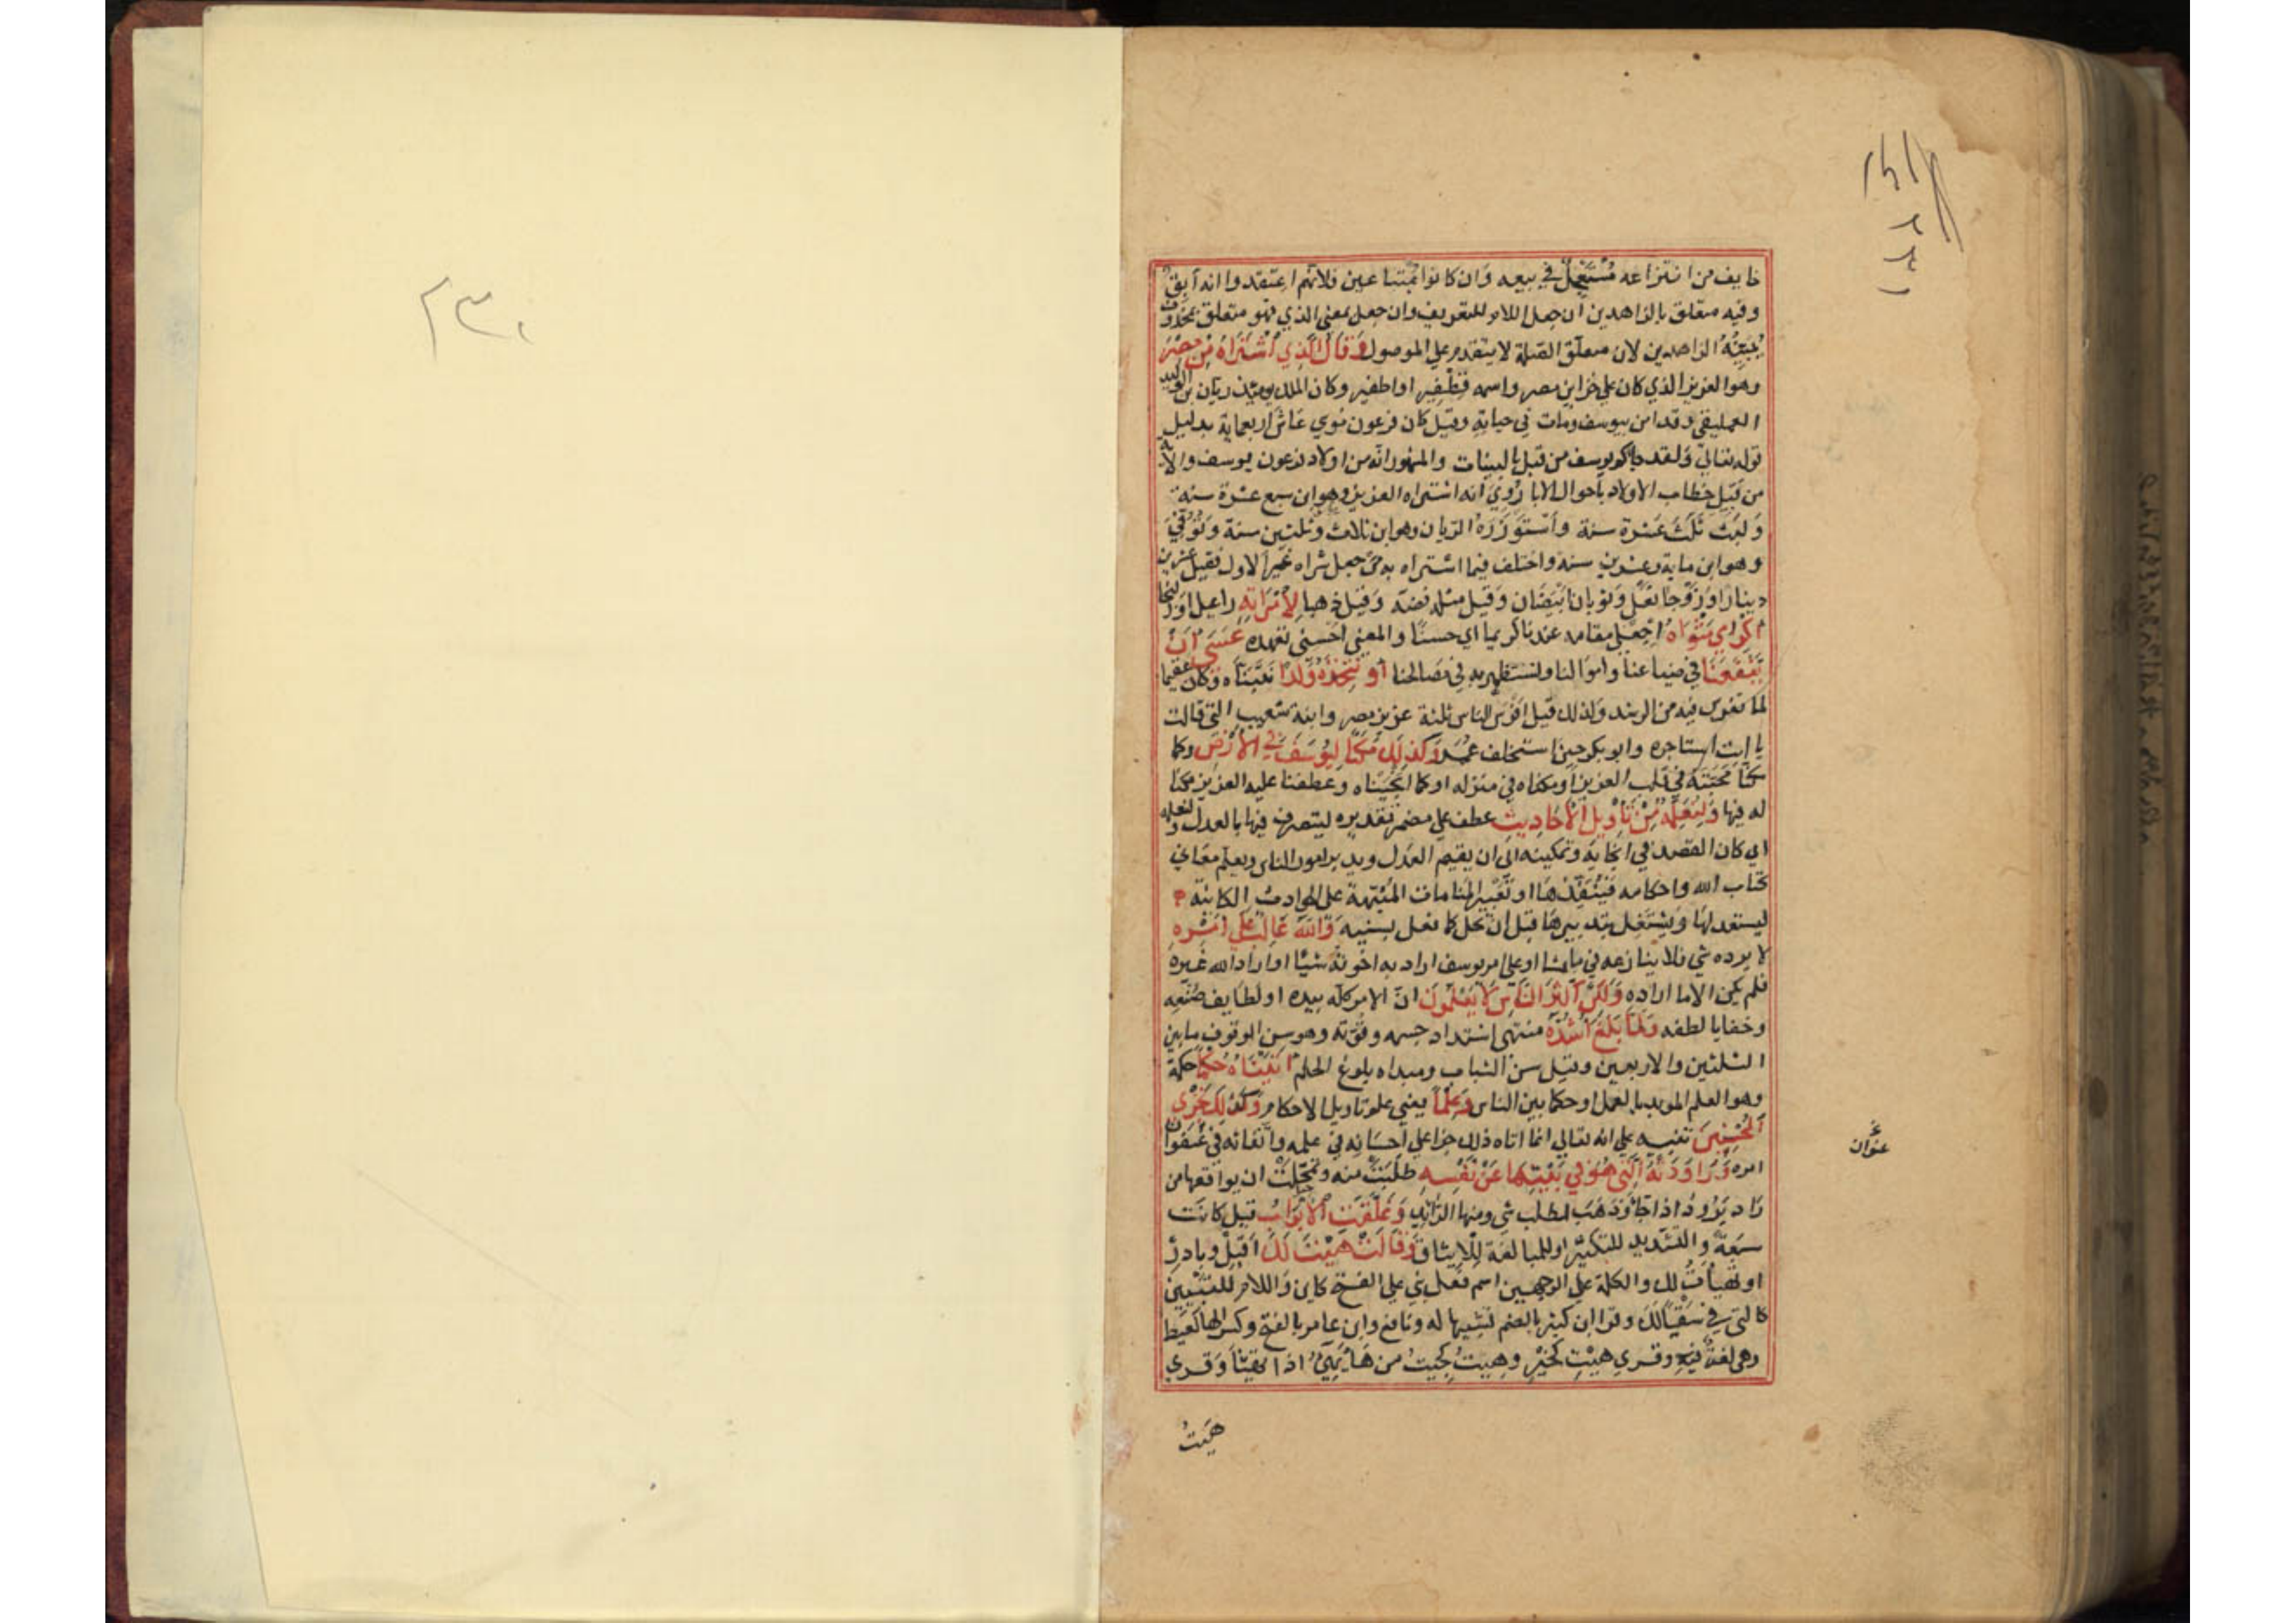 خايف من انتزاعه مُسْتَعْجِلٌ في بيعه وان كانوا مُبْتَاعين فلانهم اعتقدوا انه آبقٌ
وفيه متعلق بالزاهدين ان جعل اللام للتعريف وان جعل بمعني الذي فهو متعلق بمحذوف
يُبَيِّنُهُ الزاهدين لان متعلق الصلة لا يتقدم علي الموصول وَقَالَ الَّذِي اشْتَرَاهُ مِنْ مِصْرَ
وهو العزيز الذي كان علي خزاين مصر واسمه قِطْفِير او اطفير وكان الملك يوميذ ريان بن الوليد
العمليقي وقد امن بيوسف ومات في حياته وقيل كان فرعون موسي عاش اربعماية بدليل
قوله تعالي ولقد جاكم يوسف من قبل بالبينات والمشهور انه من اولاد فرعون يوسف والاية
من قبيل خطاب الاولاد باحوال الابا رُوِيَ انه اشتراه العزيز وهو ابن سبع عشرة سنة
ولبث ثلث عشرة سنة واستَوْزَرَهُ الريان وهو ابن ثلاث وثلثين سنة وتُوُفِّيَ
وهو ابن ماية وعشرين سنة واختلف فيما اشتراه به من جعل شراه غير الاول فقيل عشرين
دينارا وزَوْجَا نعل وثوبان ابيضان وقيل مثله فضة وقيل ذهبا لِامْرَاتِهِ راعيل او زليخا
اكْرِمِي مَثْوَاهُ اجعلي مقامه عندنا كريما اي حسنًا والمعني احسني تعهده عَسَى أَنْ
يَنْفَعَنَا في ضياعنا واموالنا ونستظهر به في مصالحنا أَوْ نَتَّخِذَهُ وَلَدًا نتبناه وكان عقيما
لما تفرس فيه من الرشد ولذلك قيل افرس الناس ثلثة عزيز مصر وابنة شعيب التي قالت
يا ابت استاجره وابو بكر حين استخلف عمر وَكَذَلِكَ مَكَّنَّا لِيُوسُفَ فِي الْأَرْضِ وكما
مكنا محبته في قلب العزيز او مكناه في منزله او كما انجيناه وعطفنا عليه العزيز مكنا
له فيها وَلِنُعَلِّمَهُ مِنْ تَأْوِيلِ الْأَحَادِيثِ عطف علي مضمر تقديره ليتصرف فيها بالعدل ولنعلمه
اي كان القصد في انجايه وتمكينه الي ان يقيم العدل ويدبر امور الناس ويعلم معاني
كتاب الله واحكامه فينفّذها او تعبير المنامات المنبّهة على الحوادث الكائنة
ليستعد لها ويشتغل بتدبيرها قبل ان تحل كما فعل بسنيه وَاللَّهُ غَالِبٌ عَلَي أَمْرِهِ
لا يرده شي ولا ينازعه في ما يشا او علي امر يوسف اراد به اخوته شيا واراد الله غيره
فلم يكن الا ما اراده وَلَكِنَّ أَكْثَرَ النَّاسِ لَا يَعْلَمُونَ انّ الامر كله بيده او لطايف صُنْعِه
وخفايا لطفه وَلَمَّا بَلَغَ أَشُدَّهُ منتهي اشتداد جسمه وقوّته وهو سن الوقوف ما بين
الثلثين والاربعين وقيل سن الشباب ومبداه بلوغ الحلم اٰتَيْنَاهُ حُكْمًا حكمة
وهو العلم المويد بالعمل او حكما بين الناس وَعِلْمًا يعني علم تاويل الاحكام وَكَذَلِكَ نَجْزِي
الْمُحْسِنِينَ تنبيه علي انه تعالي انما اتاه ذلك جزا علي احسانه في عمله واتقانه في عنفوان
امره وَرَاوَدَتْهُ الَّتِي هُوَ فِي بَيْتِهَا عَنْ نَفْسِهِ طلبت منه وتمحّلت ان يواقعها من
رَادَ يَرُودُ اذا جاء وذهب لطلب شي ومنها الرائد وَغَلَّقَتِ الْأَبْوَابَ قيل كانت
سبعة والتشديد للتكثير او للمبالغة للايثاق وَقَالَتْ هَيْتَ لَكَ اقبل وبادِرْ
او تهيأتُ لك والكلمة علي الوجهين اسم فعل بني علي الفتح كاين واللام للتبيين
كالتي في سَقْيًا لَكَ وقرا ابن كثير بالضم تشبيها له ونافع وابن عامر بالفتح وكسر الها كعيط
وهي لغة فيه وقري هيْتِ كجَيْرِ وهِيْتُ كجيتُ من هَاءَ يَهِيءُ اذا تهيّأ وقري
هَيتُ
عنوان
٢٣٠